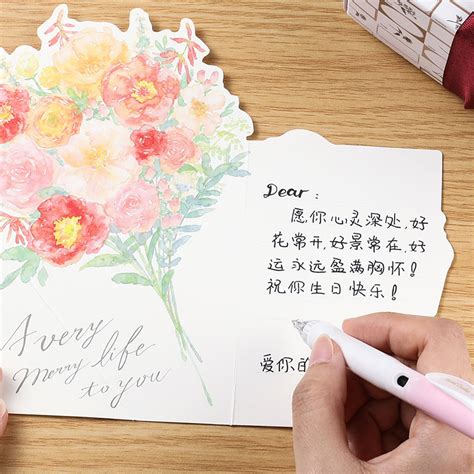 A very
Merry life
to you
Dear:
愿你心灵深处,好
花常开,好景常在,好
运永远盈满胸怀!
祝你生日快乐!
爱你的